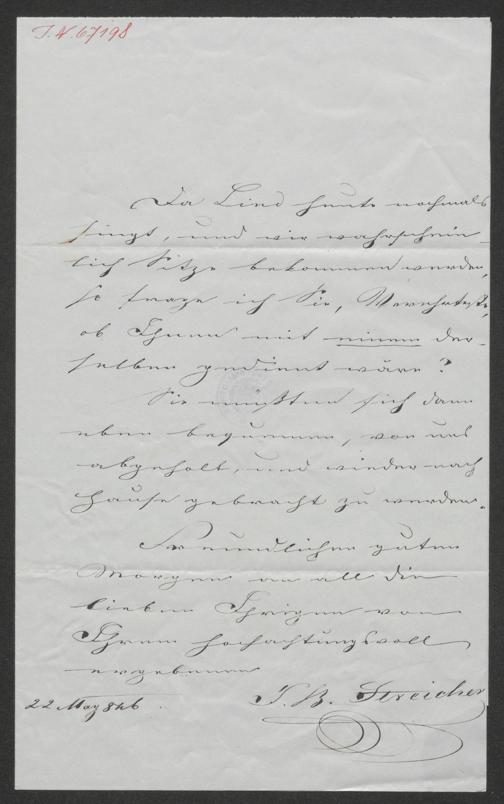 I. N. 67198
Da Lind heute nochmals
singt, und wir wahrschein-
lich Sitze bekommen werden,
so frage ich Sie, Verehrteste,
ob Ihnen mit einem der-
selben gedient wäre?
Sie müßten sich dann
eben bequemen, von uns
abgeholt, und wieder nach
Hause gebracht zu werden.
Freundlichen guten
Morgen an all die
lieben Ihrigen von
Ihrem hochachtungsvoll
ergebenen
J. B. Streicher
22 May 846